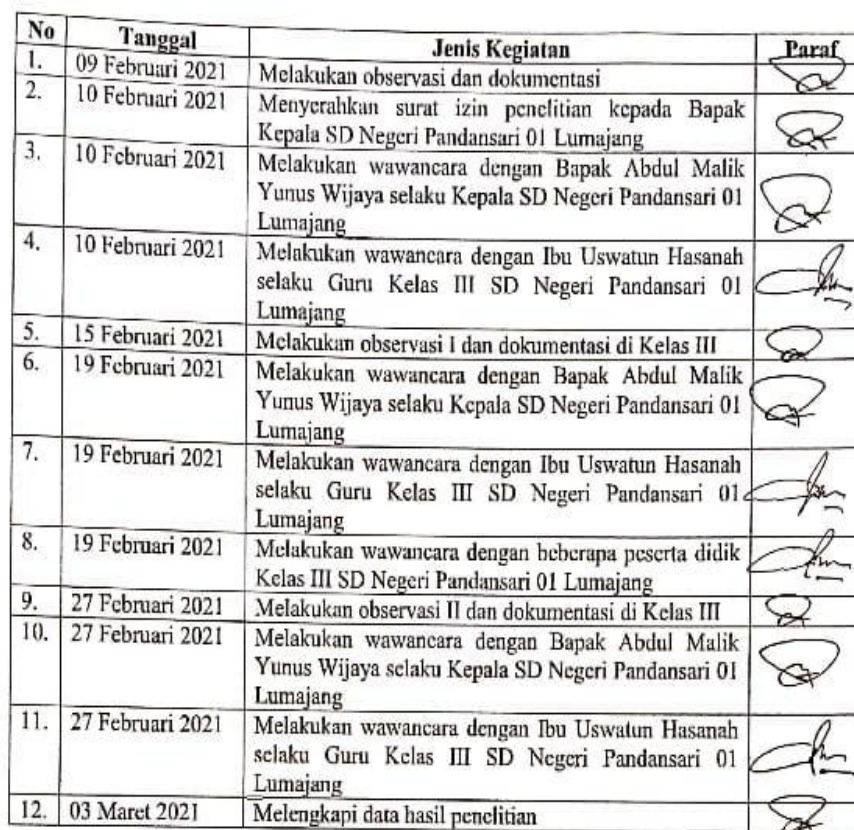 No Tanggal Jenis Kegiatan Paraf
1. 09 Februari 2021 Melakukan observasi dan dokumentasi
2. 10 Februari 2021 Menyerahkan surat izin penelitian kepada Bapak
Kepala SD Negeri Pandansari 01 Lumajang
3. 10 Februari 2021 Melakukan wawancara dengan Bapak Abdul Malik
Yunus Wijaya selaku Kepala SD Negeri Pandansari 01
Lumajang
4. 10 Februari 2021 Melakukan wawancara dengan Ibu Uswatun Hasanah
selaku Guru Kelas III SD Negeri Pandansari 01
Lumajang
5. 15 Februari 2021 Melakukan observasi I dan dokumentasi di Kelas III
6. 19 Februari 2021 Melakukan wawancara dengan Bapak Abdul Malik
Yunus Wijaya selaku Kepala SD Negeri Pandansari 01
Lumajang
7. 19 Februari 2021 Melakukan wawancara dengan Ibu Uswatun Hasanah
selaku Guru Kelas III SD Negeri Pandansari 01
Lumajang
8. 19 Februari 2021 Melakukan wawancara dengan beberapa peserta didik
Kelas III SD Negeri Pandansari 01 Lumajang
9. 27 Februari 2021 Melakukan observasi II dan dokumentasi di Kelas III
10. 27 Februari 2021 Melakukan wawancara dengan Bapak Abdul Malik
Yunus Wijaya selaku Kepala SD Negeri Pandansari 01
Lumajang
11. 27 Februari 2021 Melakukan wawancara dengan Ibu Uswatun Hasanah
selaku Guru Kelas III SD Negeri Pandansari 01
Lumajang
12. 03 Maret 2021 Melengkapi data hasil penelitian